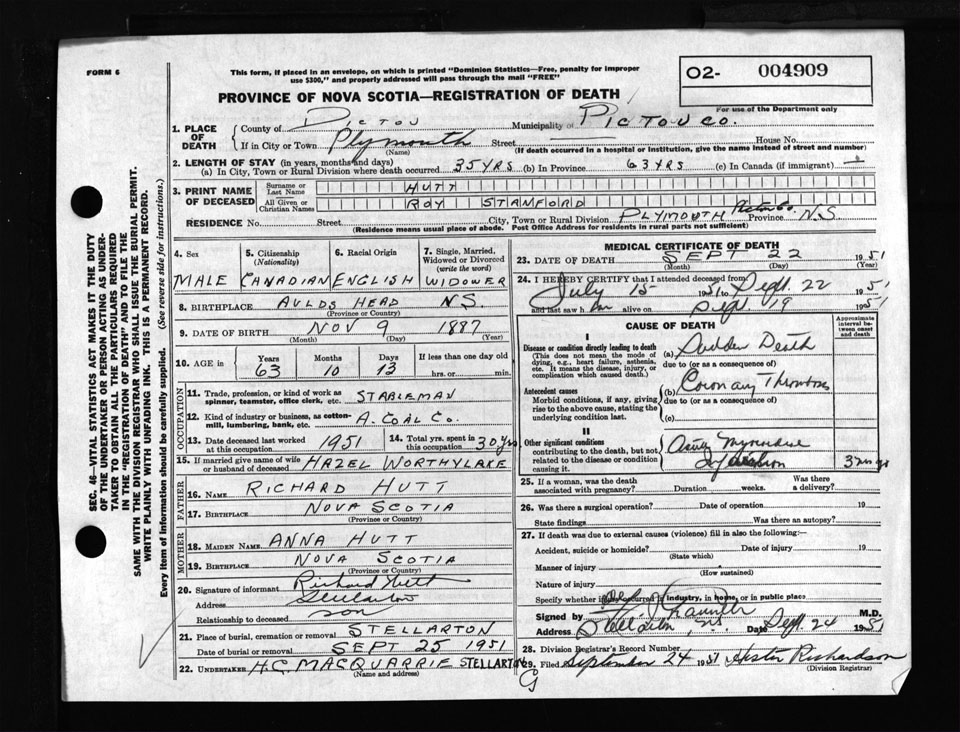 FORM 6
This form, if placed in an envelope, on which is printed "Dominion Statistics—Free, penalty for improper
use $300," and properly addressed will pass through the mail "FREE"
O2- 004909
For use of the Department only
PROVINCE OF NOVA SCOTIA—REGISTRATION OF DEATH
1. PLACE OF DEATH
County of PICTOU Municipality of PICTOU CO.
If in City or Town Plymouth Street House No.
(Name) (If death occurred in a hospital or institution, give the name instead of street and number)
2. LENGTH OF STAY (in years, months and days)
(a) In City, Town or Rural Division where death occurred 35 YRS (b) In Province 63 YRS (c) In Canada (if immigrant)
3. PRINT NAME OF DECEASED
Surname or Last Name HUTT
All Given or Christian Names ROY STANFORD
RESIDENCE No. Street City, Town or Rural Division PLYMOUTH Pictou Co. Province N.S.
(Residence means usual place of abode. Post Office Address for residents in rural parts not sufficient)
SEC. 46—VITAL STATISTICS ACT MAKES IT THE DUTY
OF THE UNDERTAKER OR PERSON ACTING AS UNDER-
TAKER TO OBTAIN ALL THE PARTICULARS REQUIRED
IN THE "REGISTRATION OF DEATH" AND TO FILE THE
SAME WITH THE DIVISION REGISTRAR WHO SHALL ISSUE THE BURIAL PERMIT.
WRITE PLAINLY WITH UNFADING INK. THIS IS A PERMANENT RECORD.
Every item of information should be carefully supplied. (See reverse side for instructions.)
4. Sex 5. Citizenship (Nationality) 6. Racial Origin 7. Single, Married, Widowed or Divorced (write the word)
MALE CANADIAN ENGLISH WIDOWER
8. BIRTHPLACE AULDS HEAD N.S.
(Province or Country)
9. DATE OF BIRTH NOV 9 1887
(Month) (Day) (Year)
10. AGE IN Years Months Days If less than one day old
63 10 13 hrs. or min.
OCCUPATION
11. Trade, profession, or kind of work as
spinner, teamster, office clerk, etc. STABLEMAN
12. Kind of industry or business, as cotton-
mill, lumbering, bank, etc. A. COAL CO.
13. Date deceased last worked
at this occupation 1951
14. Total yrs. spent in
this occupation 30 yrs
15. If married give name of wife
or husband of deceased HAZEL WORTHYLAKE
FATHER
16. NAME RICHARD HUTT
17. BIRTHPLACE NOVA SCOTIA
(Province or Country)
MOTHER
18. MAIDEN NAME ANNA HUTT
19. BIRTHPLACE NOVA SCOTIA
(Province or Country)
20. Signature of informant Richard Hutt
Address Stellarton
Relationship to deceased son
21. Place of burial, cremation or removal STELLARTON
Date of burial or removal SEPT 25 1951
22. UNDERTAKER H.C. MACQUARRIE STELLARTON
(Name and address)
MEDICAL CERTIFICATE OF DEATH
23. DATE OF DEATH SEPT 22 1951
(Month) (Day) (Year)
24. I HEREBY CERTIFY that I attended deceased from
July 15 1951 to Sept. 22 1951
and last saw him alive on Sept 19 1951
CAUSE OF DEATH
Approximate interval between onset and death
I
Disease or condition directly leading to death
(This does not mean the mode of
dying, e.g., heart failure, asthenia,
etc. It means the disease, injury, or
complication which caused death.)
(a) Sudden Death
due to (or as a consequence of)
Antecedent causes
Morbid conditions, if any, giving
rise to the above cause, stating the
underlying condition last.
(b) Coronary Thrombosis
due to (or as a consequence of)
(c)
II
Other significant conditions
contributing to the death, but not
related to the disease or condition
causing it.
25. If a woman, was the death
associated with pregnancy? Duration weeks. Was there
a delivery?
26. Was there a surgical operation? Date of operation 19
State findings Was there an autopsy?
27. If death was due to external causes (violence) fill in also the following:—
Accident, suicide or homicide? Date of injury 19
(State which)
Manner of injury
(How sustained)
Nature of injury
Specify whether injury occurred in industry, in home, or in public place
Signed by M.D.
Address Stellarton, N.S. Date Sept. 24 1951
28. Division Registrar's Record Number
29. Filed September 24 1951 Hester Richardson
(Division Registrar)